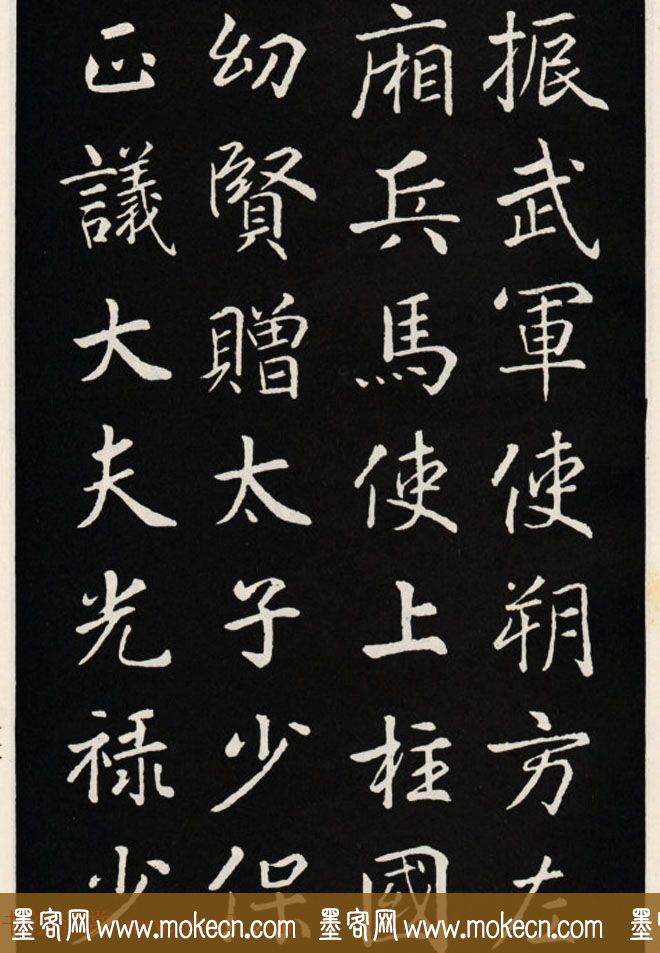 振武軍使朔方左
廂兵馬使上柱國
幼賢贈太子少保
正議大夫光禄少
墨客网 www.mokecn.com 墨客网 www.mokecn.com 墨客